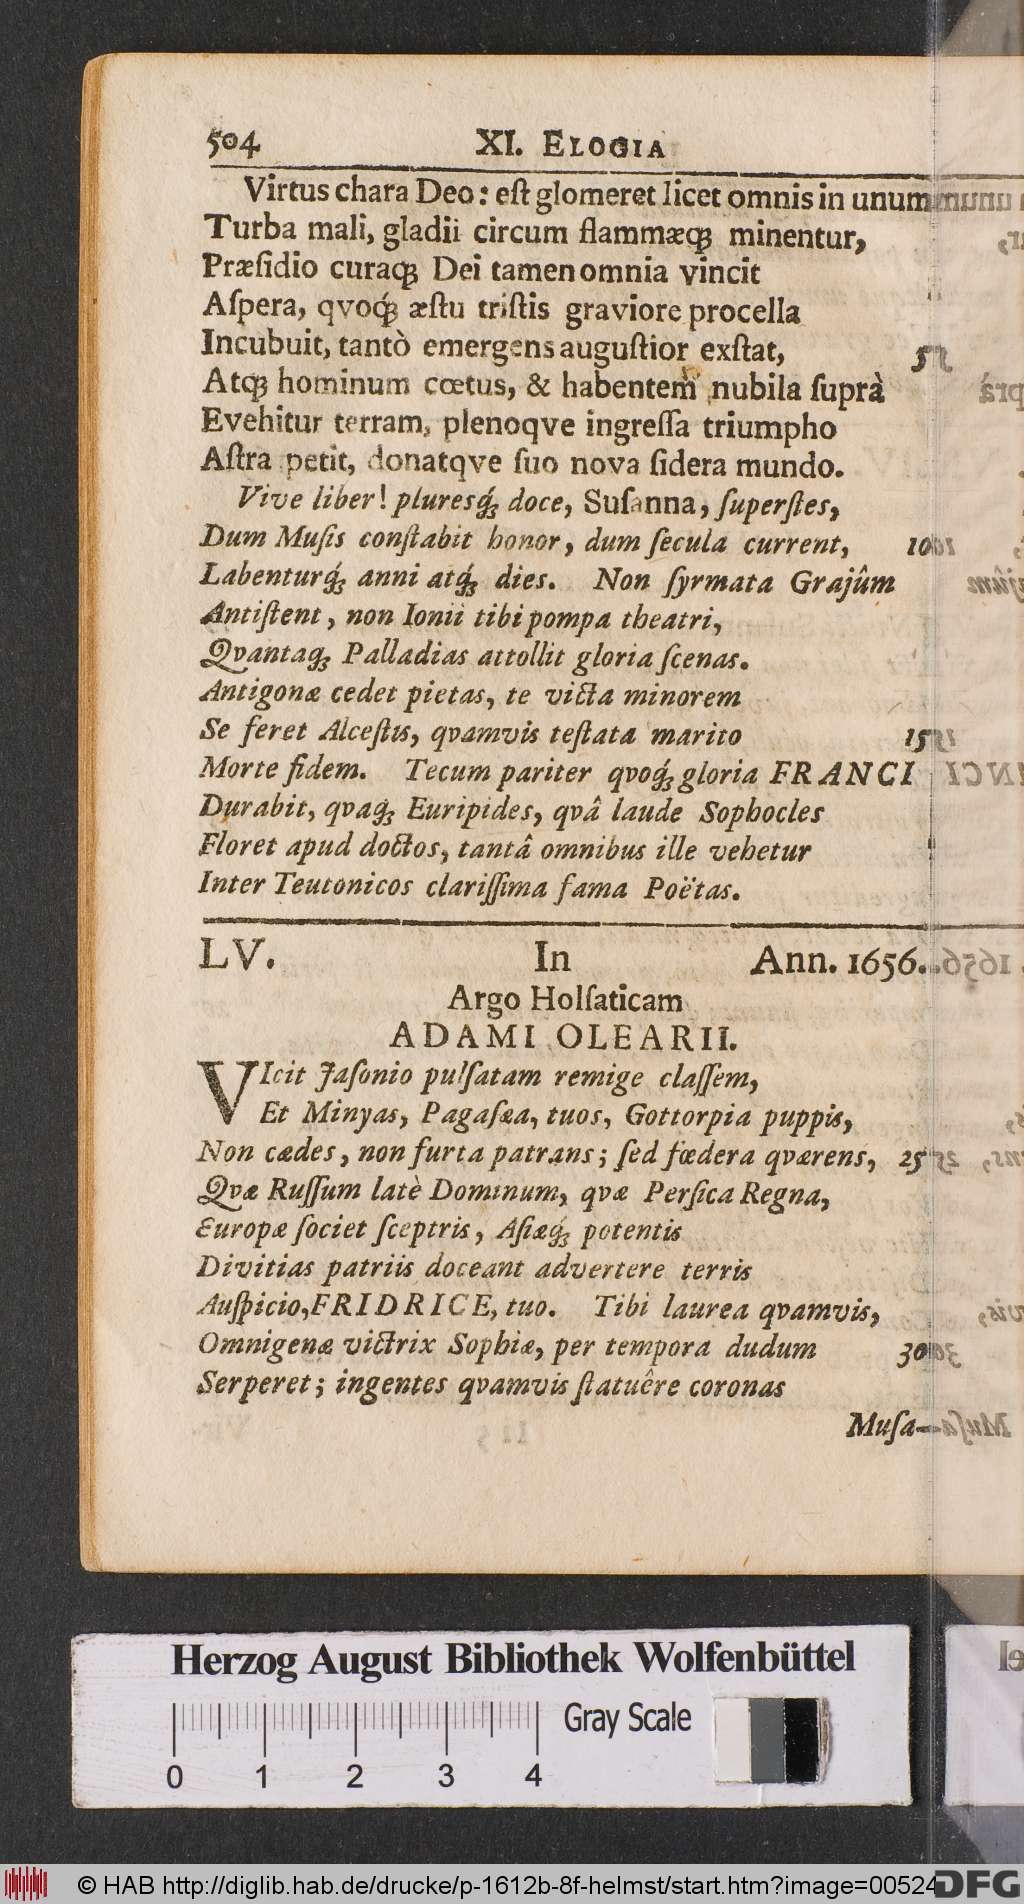 504 XI. ELOGIA
Virtus chara Deo: eſt glomeret licet omnis in unum
Turba mali, gladii circum flammæq́ꝫ minentur,
Præſidio curaqꝫ Dei tamen omnia vincit
Aſpera, qvoq́ꝫ æſtu triſtis graviore procella
Incubuit, tantò emergens auguſtior exſtat, 5
Atqꝫ hominum cœtus, & habentem nubila ſuprà
Evehitur terram, plenoqve ingreſſa triumpho
Aſtra petit, donatqve ſuo nova ſidera mundo.
Vive liber! pluresq́ꝫ doce, Suſanna, ſuperſtes,
Dum Muſis conſtabit honor, dum ſecula current, 10
Labenturq́ꝫ anni atq́ꝫ dies. Non ſyrmata Grajûm
Antiſtent, non Ionii tibi pompa theatri,
Qvantaqꝫ Palladias attollit gloria ſcenas.
Antigonæ cedet pietas, te victa minorem
Se feret Alceſtis, qvamvis teſtata marito 15
Morte fidem. Tecum pariter qvoq́ꝫ gloria FRANCI
Durabit, qvaqꝫ Euripides, qvâ laude Sophocles
Floret apud doctos, tantâ omnibus ille vehetur
Inter Teutonicos clariſſima fama Poëtas.
LV. In Ann. 1656.
Argo Holſaticam
ADAMI OLEARII.
VIcit Jaſonio pulſatam remige claſſem,
Et Minyas, Pagaſæa, tuos, Gottorpia puppis,
Non cædes, non furta patrans; ſed fœdera qværens, 25
Qvæ Ruſſum latè Dominum, qvæ Perſica Regna,
Europæ ſociet ſceptris, Aſiæq́ꝫ potentis
Divitias patriis doceant advertere terris
Auſpicio, FRIDRICE, tuo. Tibi laurea qvamvis,
Omnigenæ victrix Sophiæ, per tempora dudum 30
Serperet; ingentes qvamvis ſtatuêre coronas
Muſa-
Herzog August Bibliothek Wolfenbüttel
Gray Scale
0 1 2 3 4
© HAB http://diglib.hab.de/drucke/p-1612b-8f-helmst/start.htm?image=00524
DFG